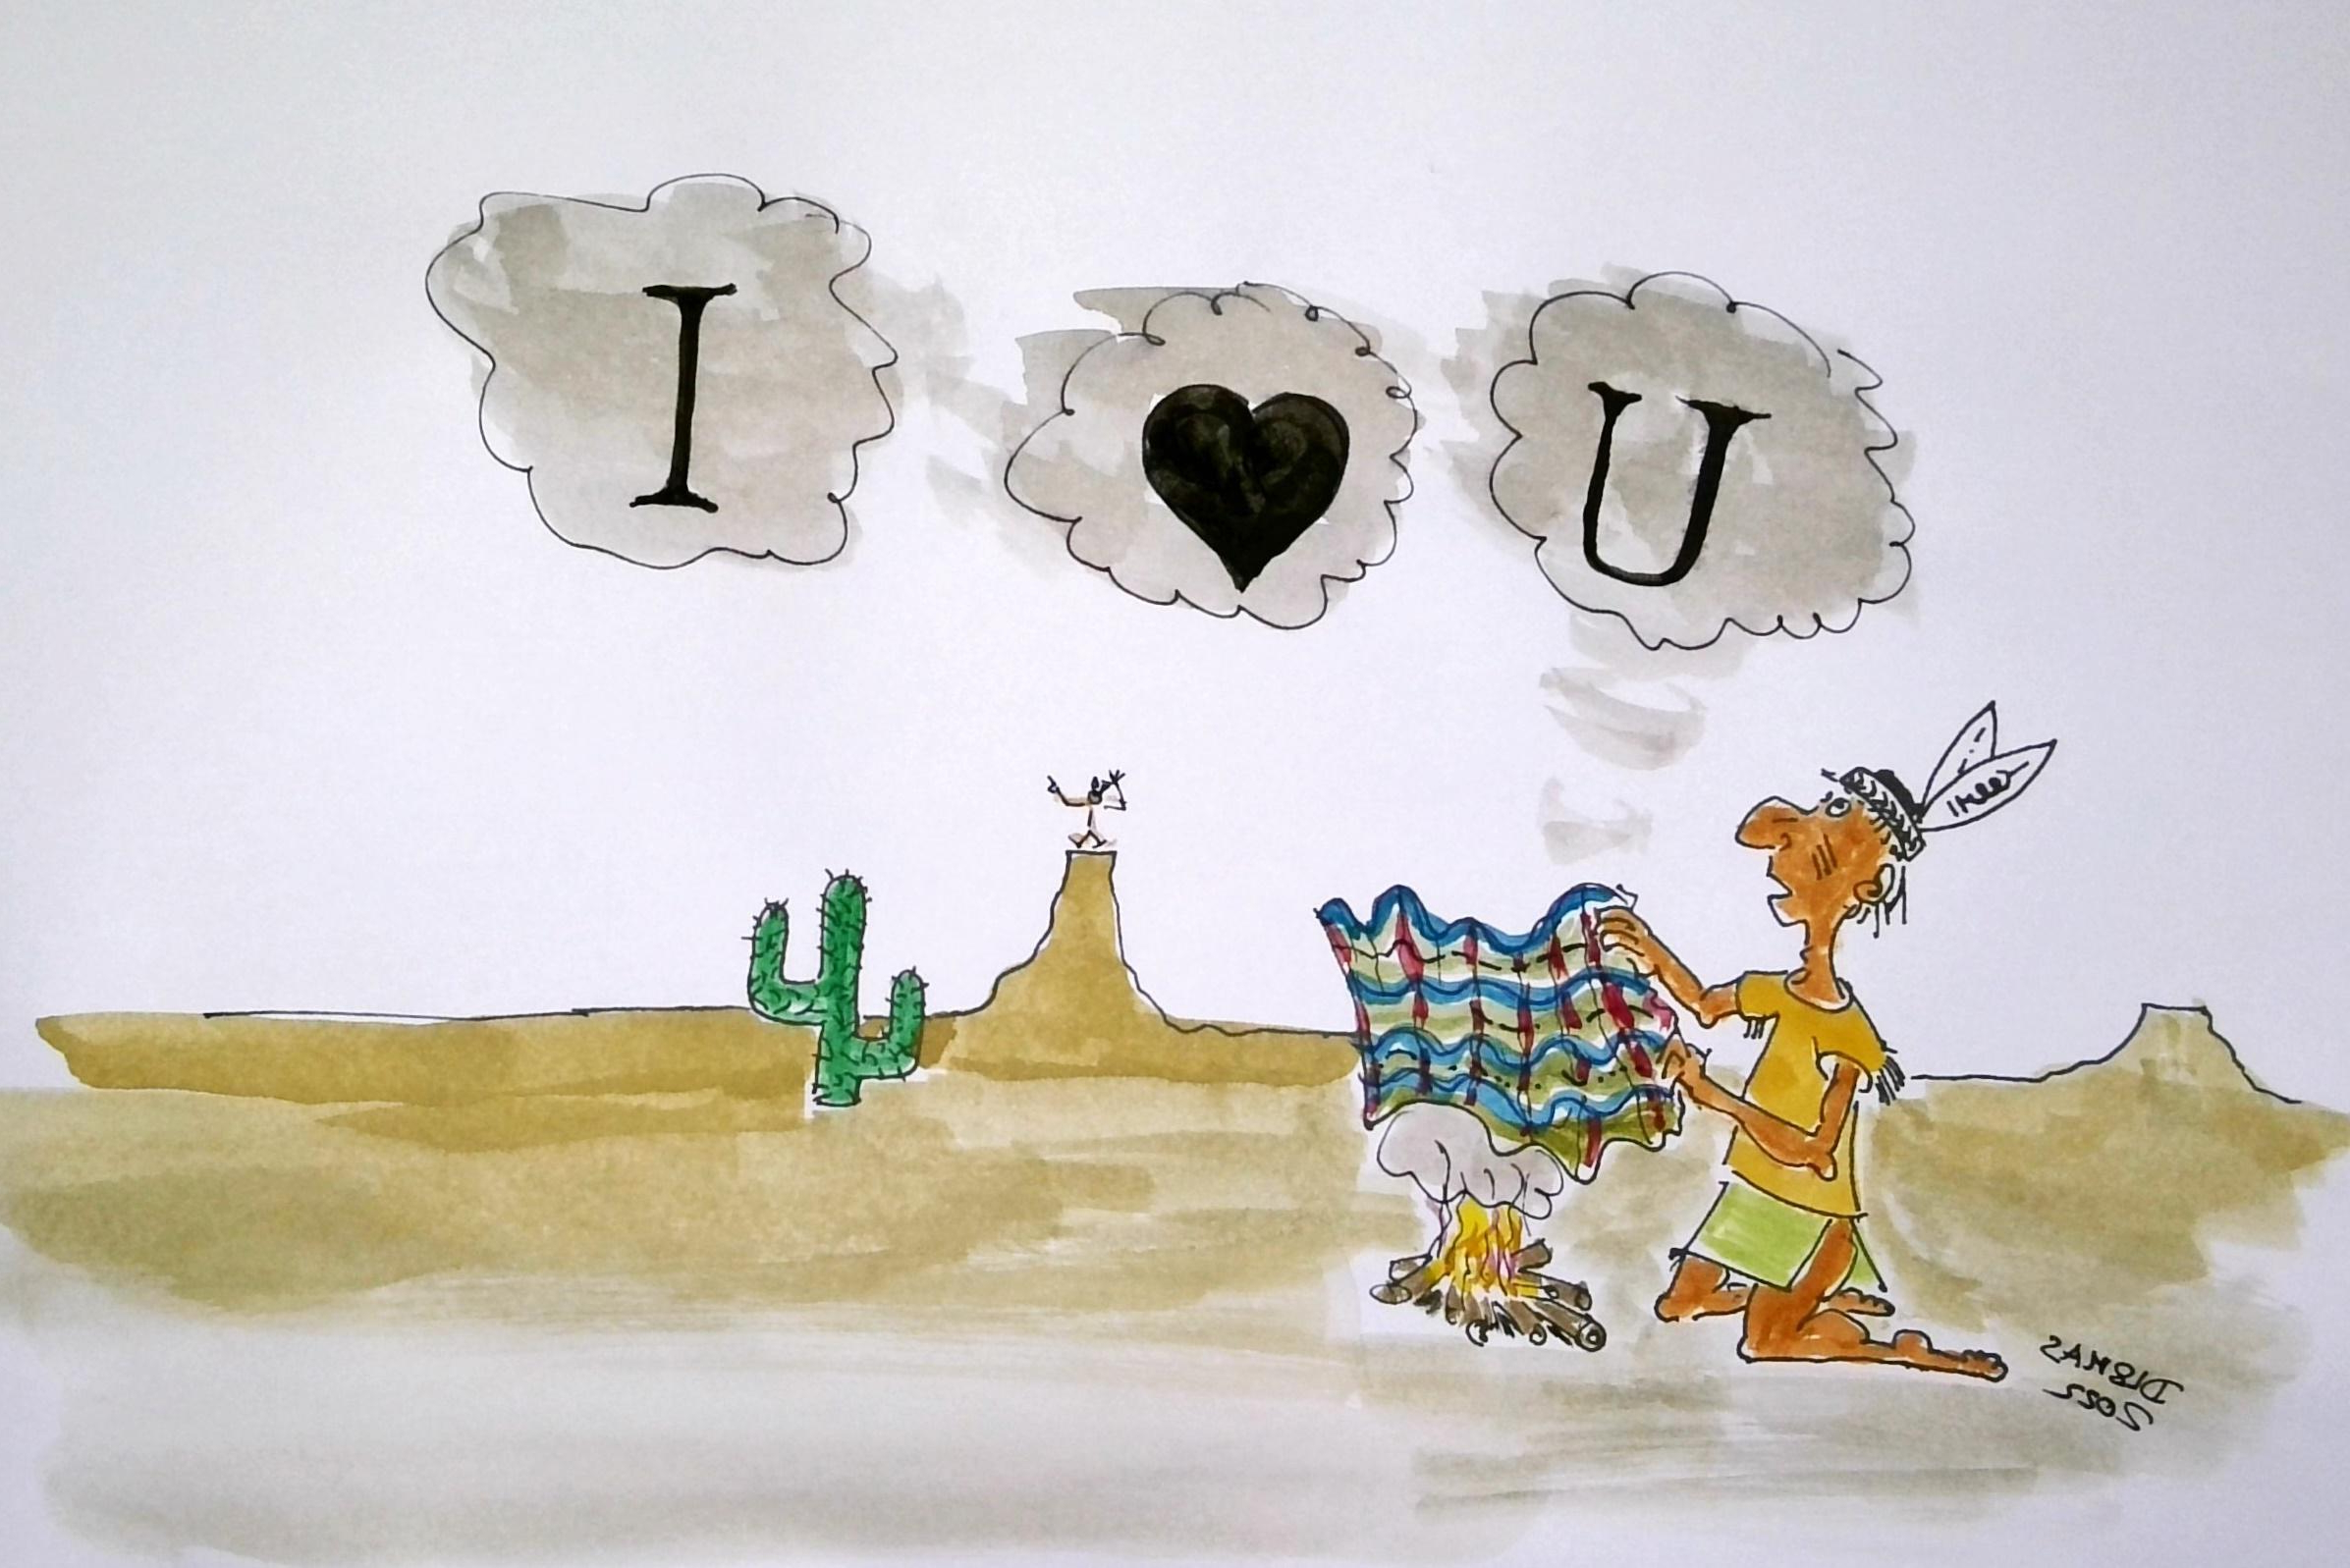 I ♥ U
DIBMAS
2022